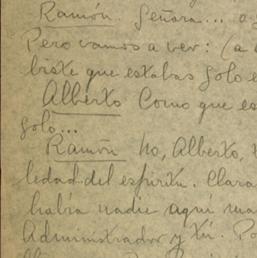 Ramón. Señora... a
Pero vamos a ver: (a
biste que estabas solo e
Alberto Como que es
solo...
Ramón No, Alberto,
ledad del espíritu. Clara
había nadie aquí ma
Administrador y tú. Po